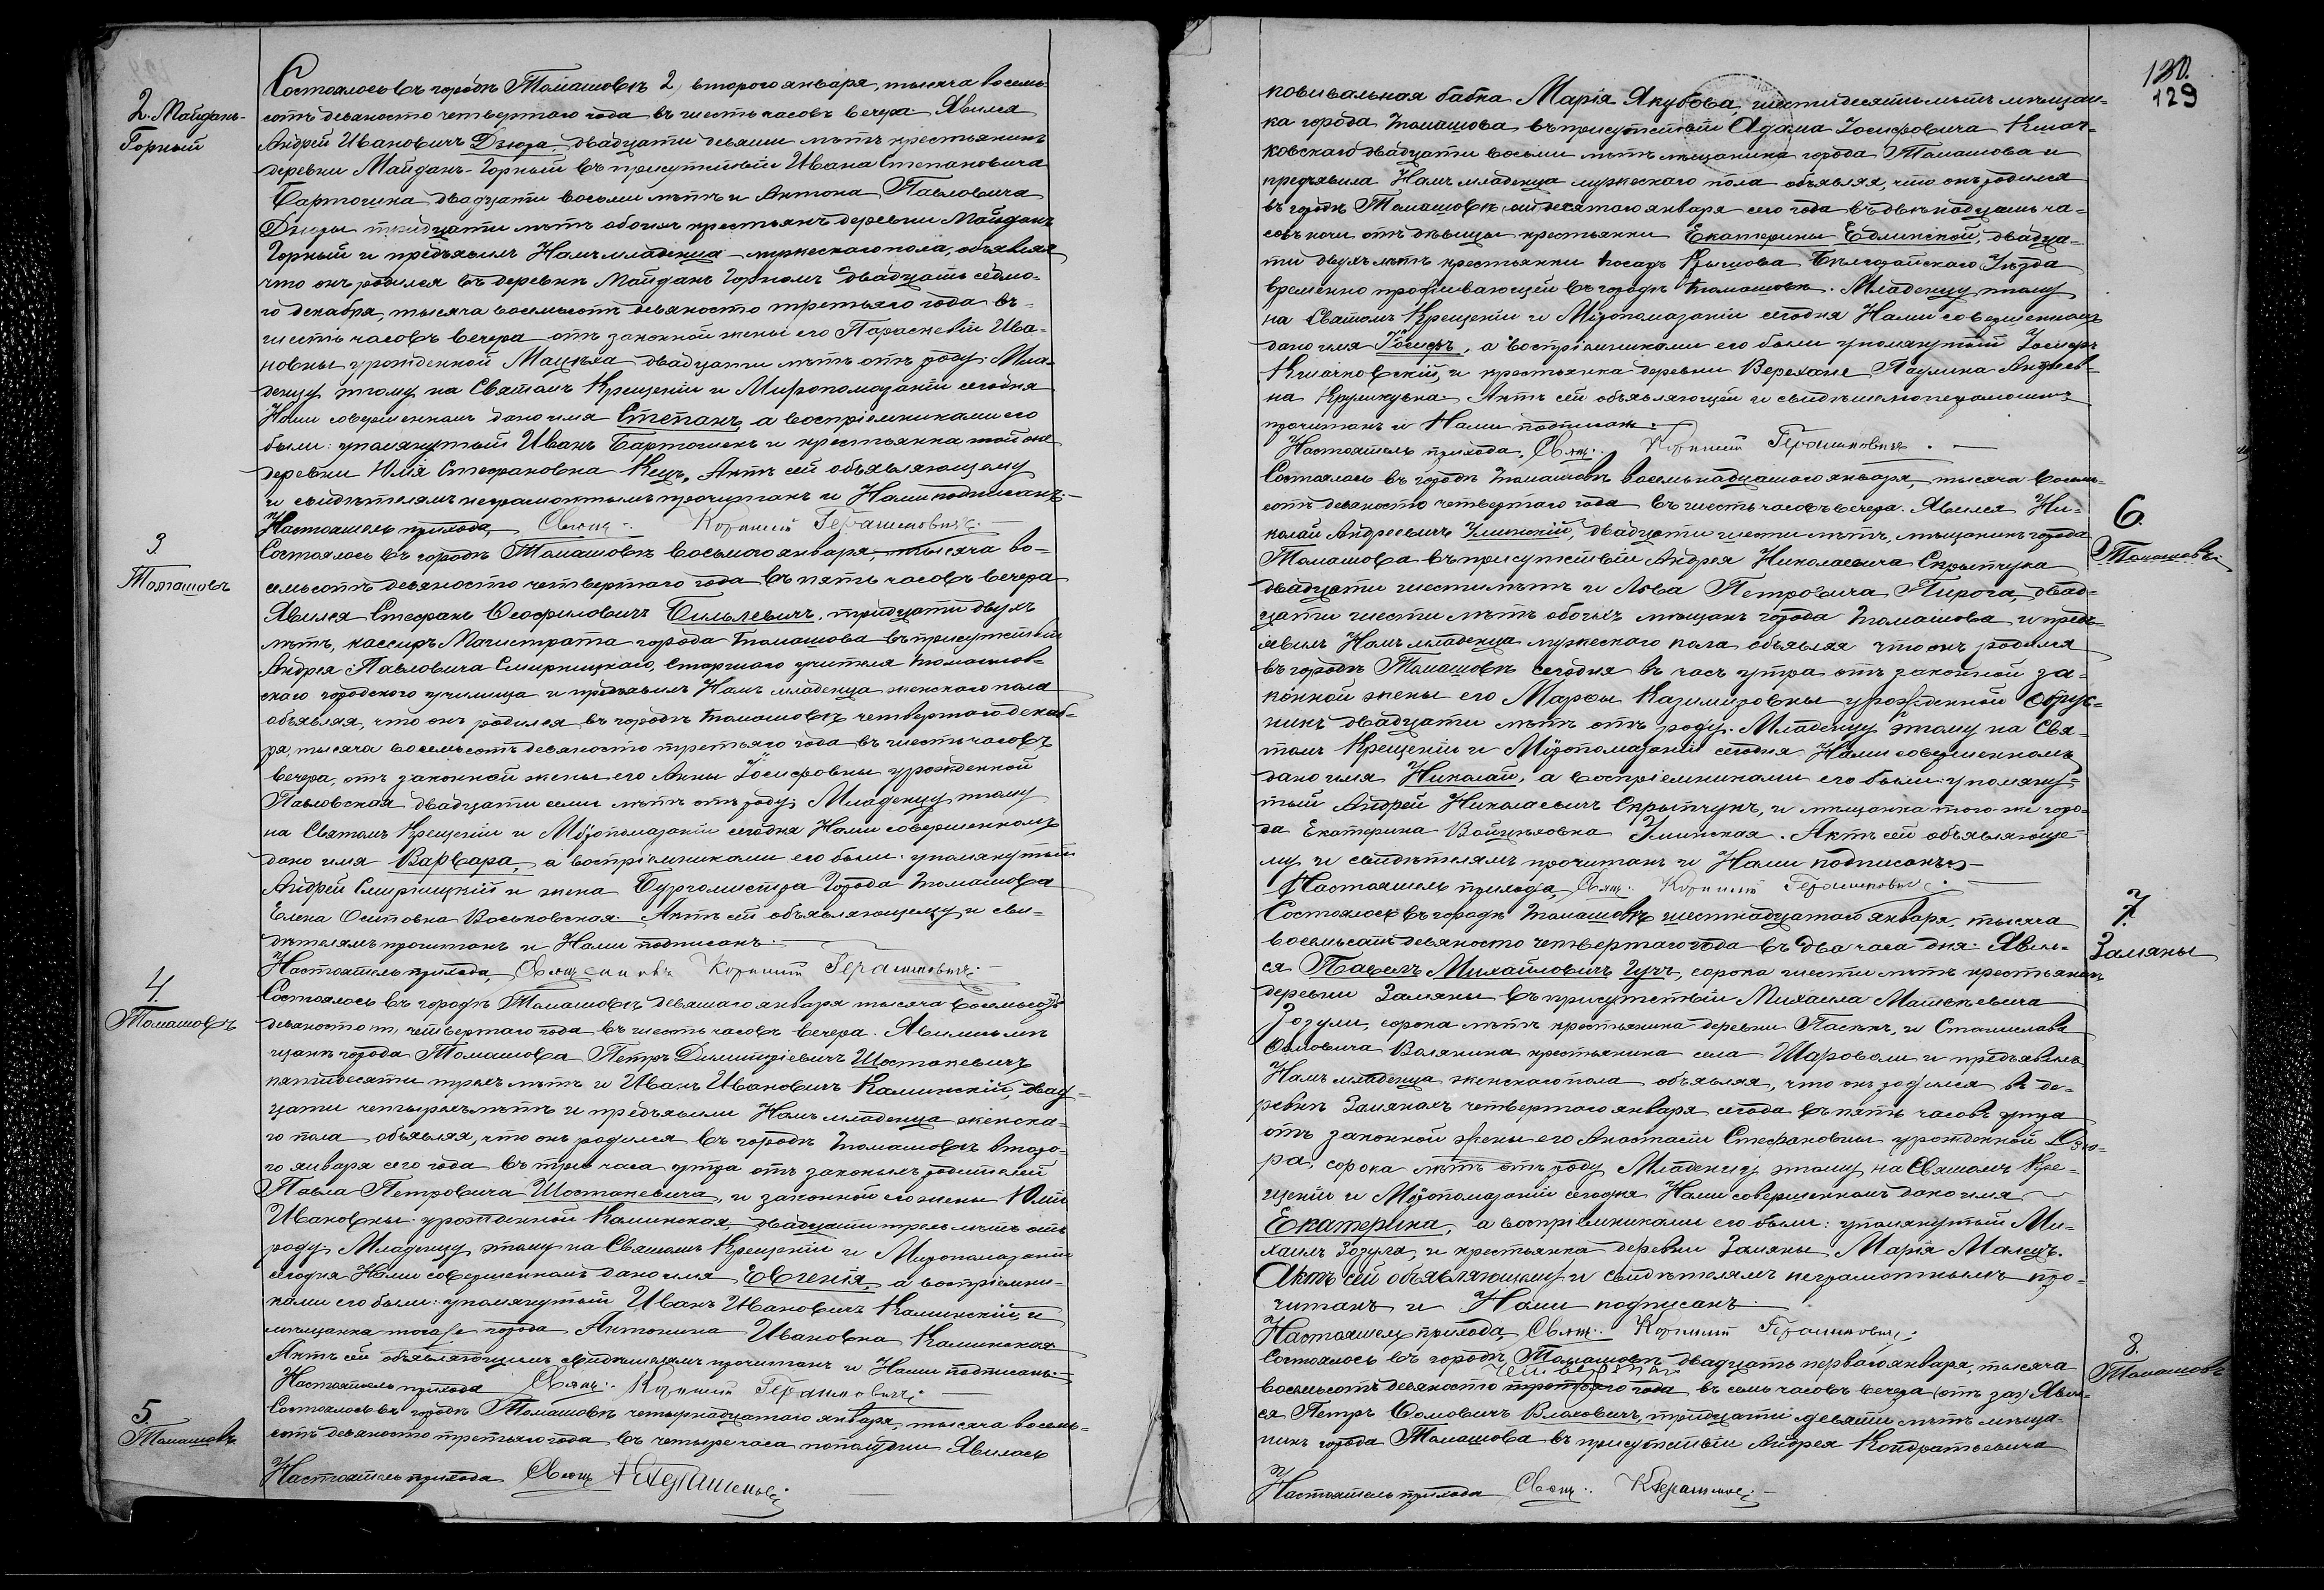 2. Майданъ-
Горный
Состоялось въ городѣ Томашовѣ 2, второго января, тысяча восемь-
сотъ девяносто четвертаго года въ шесть часовъ вечера. Явился
Андрей Ивановичъ Дзюра, двадцати девяти лѣтъ крестьянинъ
деревни Майданъ-Горный въ присутствіи Ивана Степановича
Бартошика двадцати восьми лѣтъ и Антона Павловича
Дзюры тридцати лѣтъ обоихъ крестьянъ деревни Майданъ
Горный и предъявилъ Намъ младенца мужескаго пола, объявляя
что онъ родился въ деревнѣ Майданъ Горномъ двадцать седьмо-
го декабря, тысяча восемьсотъ девяносто третьяго года въ
шесть часовъ вечера отъ законной жены его Параскевіи Ива-
новны урожденной Мацѣха двадцати лѣтъ отъ роду. Мла-
денцу этому на Святомъ Крещеніи и Миропомазаніи сегодня
Нами совершенномъ дано имя Степанъ, а воспріемниками его
были: упомянутый Иванъ Бартошекъ и крестьянка той же
деревни Юлія Стефановна Кецъ. Актъ сей объявляющему
и свидѣтелямъ неграмотнымъ прочитанъ и Нами подписанъ.
Настоятель прихода, Свящ. Корнилій Герашковичъ.
3
Томашовъ
Состоялось въ городѣ Томашовѣ восьмого января, тысяча во-
семьсотъ девяносто четвертаго года въ пять часовъ вечера
Явился Стефанъ Ѳеофиловичъ Билевичъ, тридцати двухъ
лѣтъ, кассиръ Магистрата города Томашова въ присутствіи
Андрея Павловича Смирницкаго, старшаго учителя томашов-
скаго городского училища и предъявилъ Намъ младенца женскаго пола
объявляя, что онъ родился въ городѣ Томашовѣ четвертаго декаб-
ря, тысяча восемьсотъ девяносто третьяго года въ шесть часовъ
вечера, отъ законной жены его Анны Іосифовны урожденной
Павловская двадцати семи лѣтъ отъ роду. Младенцу этому
на Святомъ Крещеніи и Мѵропомазаніи сегодня Нами совершенномъ
дано имя Варвара, а воспріемниками его были: упомянутый
Андрей Смирницкій и жена Бургомистра города Томашова
Елена Осиповна Воськовская. Актъ сей объявляющему и сви-
дѣтелямъ прочитанъ и Нами подписанъ.
Настоятель прихода, Священникъ Корнилій Герашковичъ.
4.
Томашовъ
Состоялось въ городѣ Томашовѣ девятаго января тысяча восемьсотъ
девяносто четвертаго года въ шесть часовъ вечера. Явились мѣ-
щане города Томашова Петръ Димитріевичъ Шостакевичъ
пятидесяти трехъ лѣтъ и Иванъ Ивановичъ Каминскій, двад-
цати четырехъ лѣтъ и предъявили Намъ младенца женска-
го пола объявляя, что онъ родился въ городѣ Томашовѣ второ-
го января сего года въ три часа утра отъ законныхъ родителей
Павла Петровича Шостакевича, и законной его жены Юліи
Ивановны урожденной Каминская двадцати трехъ лѣтъ отъ
роду. Младенцу этому на Святомъ Крещеніи и Миропомазаніи
сегодня Нами совершенномъ дано имя Евгенія, а воспріемни-
ками его были: упомянутый Иванъ Ивановичъ Каминскій, и
мѣщанка того же города Антонина Ивановна Каминская
Актъ сей объявляющимъ свидѣтелямъ прочитанъ и Нами подписанъ.
Настоятель прихода Свящ. Корнилій Герашковичъ.
5.
Томашовъ
Состоялось въ городѣ Томашовѣ четырнадцатаго января, тысяча восемь-
сотъ девяносто третьяго года въ четыре часа пополудни Явилась
Настоятель прихода Свящ. К Герашковичъ
130.
129
повивальная бабка Марія Якубова, шестидесяти лѣтъ мѣщан-
ка города Томашова въ присутствіи Адама Іосифовича Кмач-
ковскаго двадцати восьми лѣтъ мѣщанина города Томашова и
предъявила Намъ младенца мужескаго пола объявляя, что онъ родился
въ городѣ Томашовѣ десятаго января сего года въ двѣнадцать ча-
совъ ночи отъ дѣвицы крестьянки Екатерины Едлинской, двадца-
ти двухъ лѣтъ крестьянки посадъ Кышова Бѣлгорайскаго Уѣзда
временно проживающей въ городѣ Томашовѣ. Младенцу этому
на Святомъ Крещеніи и Мѵропомазаніи сегодня Нами совершенномъ
дано имя Іосифъ, а воспріемниками его были упомянутый Іосифъ
Кмачковскій, и крестьянка деревни Верехане Паулина Андреев-
на Круликувна Актъ сей объявляющей и свидѣтелю неграмотнымъ
прочитанъ и Нами подписанъ.
Настоятель прихода, Свящ. Корнилій Герашковичъ.
6.
Томашовъ
Состоялось въ городѣ Томашовѣ восемьнадцатаго января, тысяча восемь-
сотъ девяносто четвертаго года въ шесть часовъ вечера. Явился Ни-
колай Андреевичъ Улинскій, двадцати шести лѣтъ, мѣщанинъ города
Томашова въ присутствіи Андрея Николаевича Скрыпчука
двадцати шести лѣтъ и Льва Петровича Пирога, двад-
цати шести лѣтъ обоихъ мѣщанъ города Томашова и предъ-
явилъ Намъ младенца мужескаго пола объявляя что онъ родился
въ городѣ Томашовѣ сегодня въ часъ утра отъ законной за-
конной жены его Марѳы Казимировны урожденной Обрус-
никъ двадцати лѣтъ отъ роду. Младенцу этому на Свя-
томъ Крещеніи и Мѵропомазаніи сегодня Нами совершенномъ
дано имя Николай, а воспріемниками его были: упомяну-
тый Андрей Николаевичъ Скрыпчукъ, и мѣщанка того-же горо-
да Екатерина Войцѣховна Улинская. Актъ сей объявляюще-
му и свидѣтелямъ прочитанъ и Нами подписанъ.
Настоятель прихода, Свящ. Корнилій Герашковичъ.
7.
Замяны
Состоялось въ городѣ Томашовѣ шестнадцатаго января, тысяча
восемьсотъ девяносто четвертаго года въ два часа дня. Явил-
ся Павелъ Михайловичъ Гучъ, сорока шести лѣтъ крестьянинъ
деревни Замяны въ присутствіи Михаила Матвѣевича
Зозули, сорока лѣтъ крестьянина деревни Пасѣки, и Станислава
Ѳомовича Волянина крестьянина села Шароволи и предъявилъ
Намъ младенца женскаго пола объявляя, что онъ родился въ де-
ревнѣ Замянахъ четвертаго января с. года въ пять часовъ утра
отъ законной жены его Анастасіи Стефановны урожденной Дзю-
ра, сорока лѣтъ отъ роду Младенцу этому на Святомъ Кре-
щеніи и Мѵропомазаніи сегодня Нами совершенномъ дано имя
Екатерина, а воспріемниками его были: упомянутый Ми-
хаилъ Зозуля, и крестьянка деревни Замяны Марія Малецъ.
Актъ сей объявляющему и свидѣтелямъ неграмотнымъ про-
читанъ и Нами подписанъ.
Настоятель прихода, Свящ. Корнилій Герашковичъ.
8.
Томашовъ
Состоялось въ городѣ Томашовѣ двадцать перваго января, тысяча
четвертаго
восемьсотъ девяносто третьяго года въ семь часовъ вечера (отъ заз) Явил-
ся Петръ Ѳомовичъ Влаховичъ, тридцати девяти лѣтъ мѣща-
нинъ города Томашова въ присутствіи Андрея Кондратьевича
Настоятель прихода Свящ. К Герашковичъ.